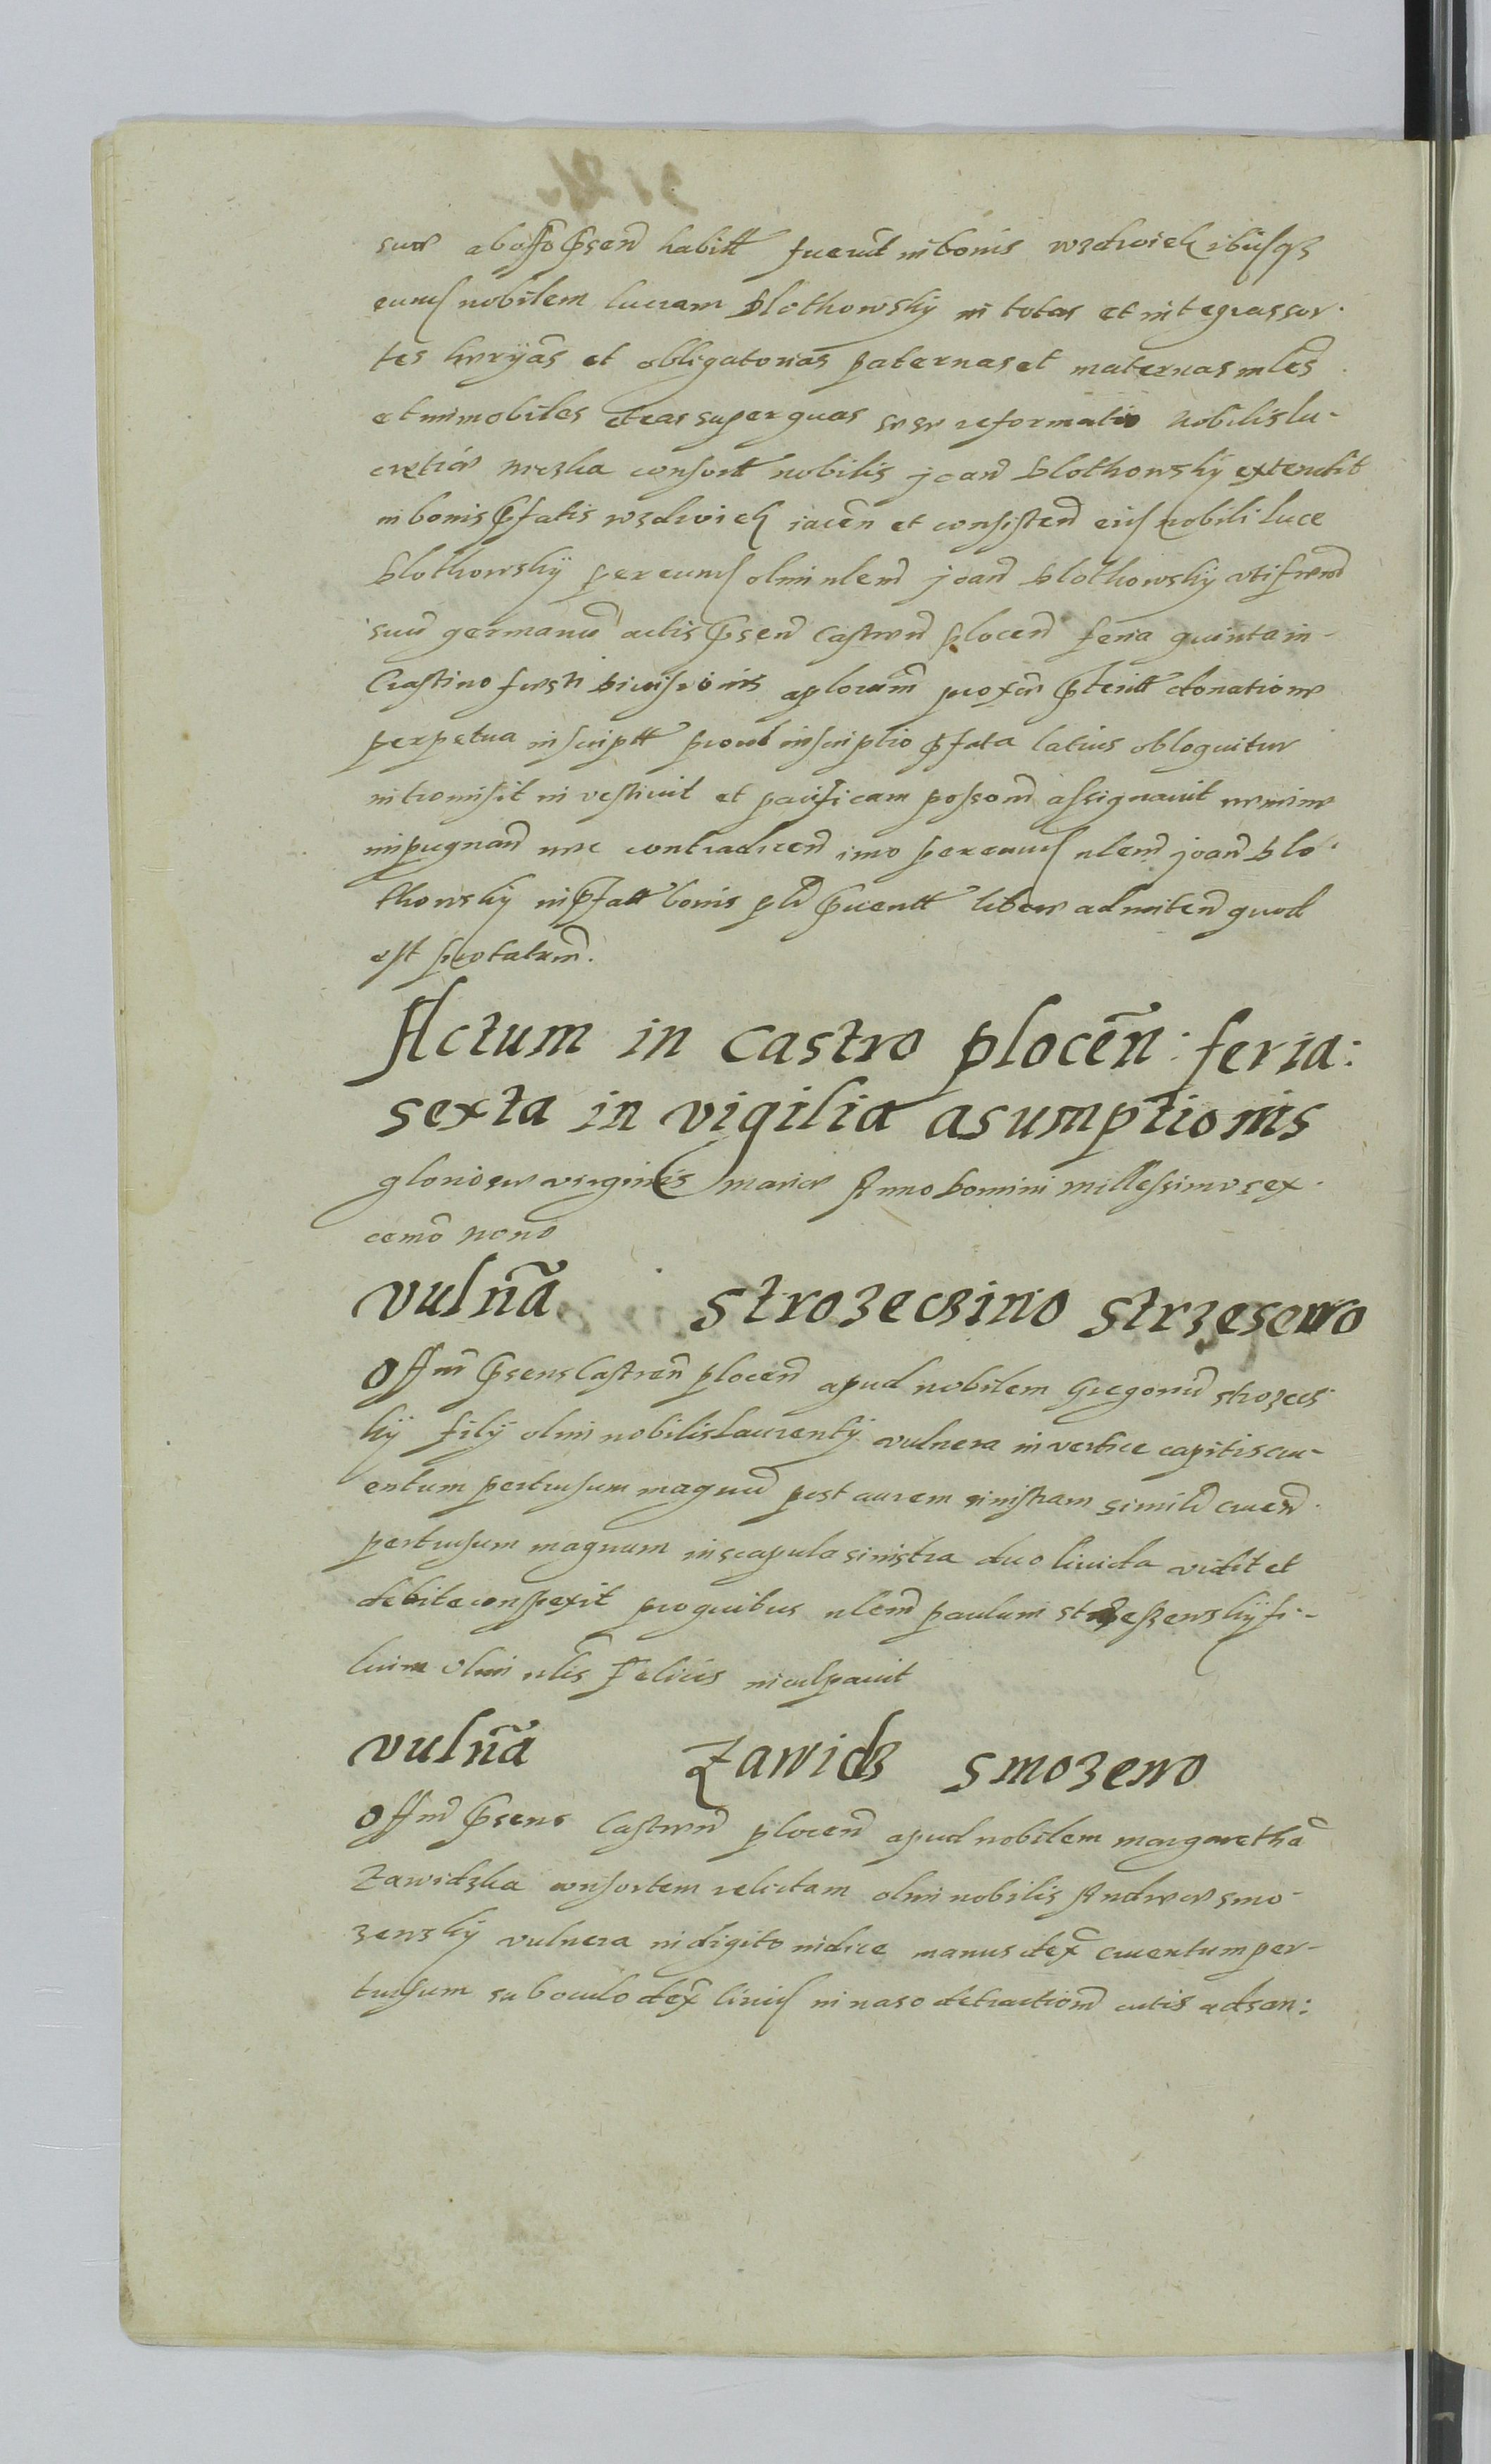 suae ab offo pñsen habitt fuerūt in bonis wzdwiek ibiusqz
eund nobilem lucam blothowsky in totas et integras sor-
tes haerÿas et obligatorias paternas et maternas mles
et immobiles et eas super quas se se reformatio nobilis lu-
cretiae mczka consortt nobilis joan blothowsky extendit
in bonis pfatis wzdwiek iacen et consisten eid nobili luce
blothowskÿ per eund olim nlem joan blothowsky uti frem
suū germanū actis pñsen castren plocen feria quinta in-
Crastino festi divisionis aplorum proxae pteritt donatione
perpetua inscriptt prout inscriptio pfata latius obloquitur
intromisit investiuit et pacificam possom assignauit nemine
impugnan nec contradicen imo per eund nlem joan blo-
thowsky in pfatt bonis plr pñentt libere admiten quod
est protatum.
Actum in castro plocēn: feria:
sexta in vigilia asumptionis
gloriosae virginis mariae Anno Domini millessimo sex-
cemo nono
vulnã strozeczino strzesewo
Offm pñsens Castren plocen apud nobilem Gregoriū strozecz
kÿ filÿ olim nobilis Laurentÿ vulnera in vertice capitis cru-
entum pertusum magnū post aurem sinistram similr cruen-
pertusum magnum in scapula sinistra duo liuida vidit et
debite conspexit pro quibus nlem paulum strzeszewskÿ fi-
lium olim nlis Felicis inculpauit
vulnã Zawidz smozewo
Offm pñsens Castren plocen apud nobilem margarethã
Zawidzka consortem relictam olim nobilis Andreae smo-
zewsky vulnera in digito indice manus dex cruentum per-
tusum sub oculo dex liuid in naso detractiom cutis ad san: